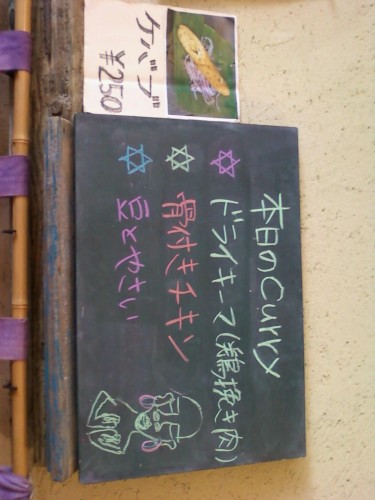 ケバブ
¥250
本日のCurry
ドライキーマ(鶏挽き肉)
骨付きチキン
豆とやさい